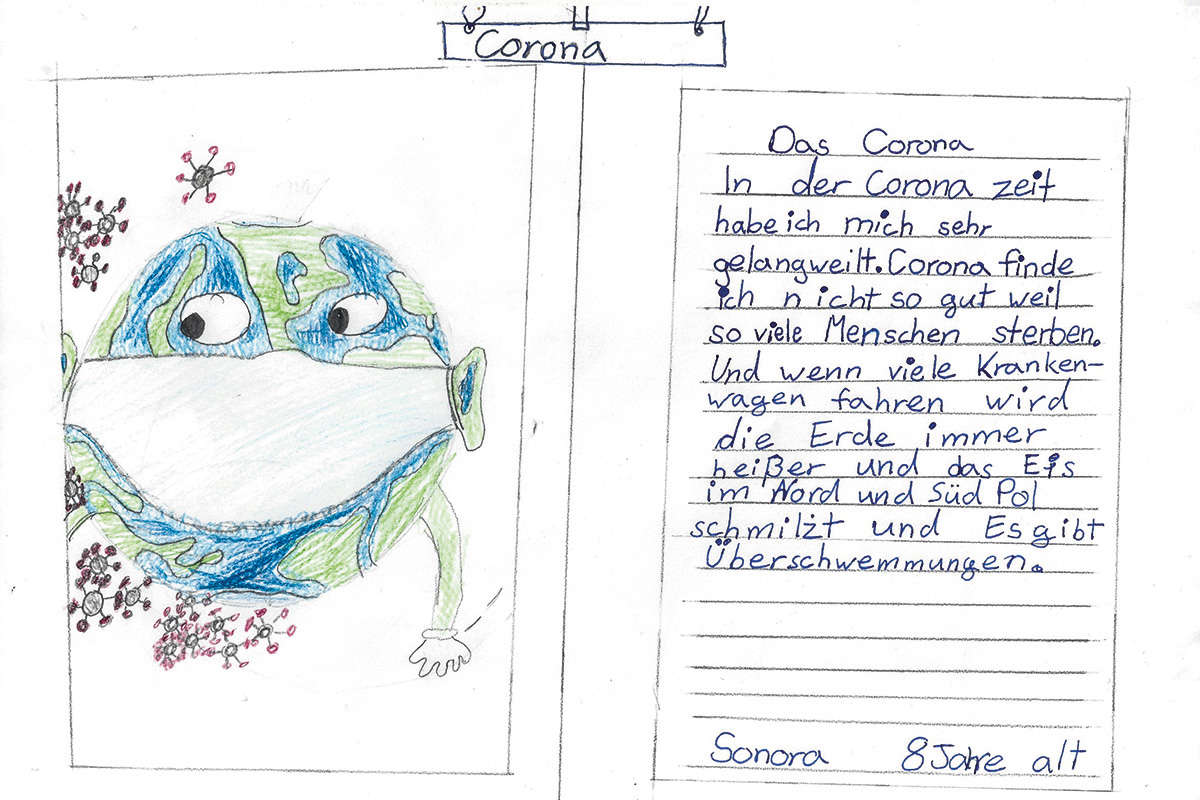 Corona
Das Corona
In der Corona zeit
habe ich mich sehr
gelangweilt. Corona finde
ich nicht so gut weil
so viele Menschen sterben.
Und wenn viele Kranken-
wagen fahren wird
die Erde immer
heißer und das Eis
im Nord und Süd Pol
schmilzt und Es gibt
Überschwemmungen.
Sonora 8 Jahre alt